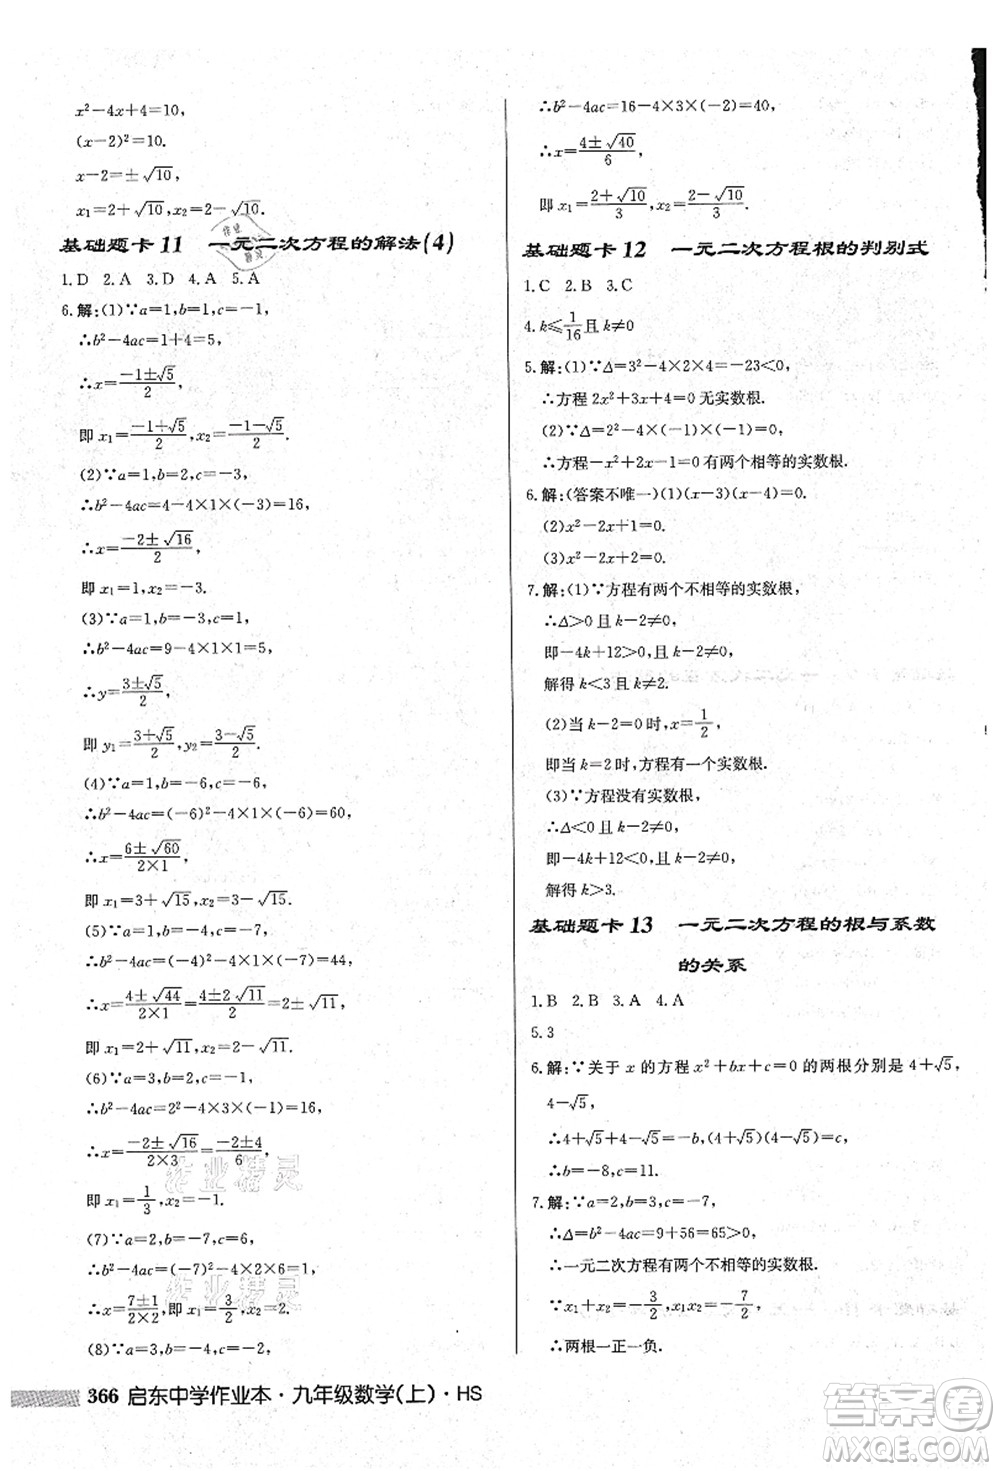 x²-4x+4=10,
(x-2)²=10.
x-2=±√10,
x₁=2+√10,x₂=2-√10.
基础题卡 11 一元二次方程的解法(4)
1.D 2.A 3.D 4.A 5.A
6.解:(1)∵a=1,b=1,c=-1,
∴b²-4ac=1+4=5,
∴x=(-1±√5)/2,
即 x₁=(-1+√5)/2,x₂=(-1-√5)/2.
(2)∵a=1,b=2,c=-3,
∴b²-4ac=4-4×1×(-3)=16,
∴x=(-2±√16)/2,
即 x₁=1,x₂=-3.
(3)∵a=1,b=-3,c=1,
∴b²-4ac=9-4×1×1=5,
∴y=(3±√5)/2,
即 y₁=(3+√5)/2,y₂=(3-√5)/2.
(4)∵a=1,b=-6,c=-6,
∴b²-4ac=(-6)²-4×1×(-6)=60,
∴x=(6±√60)/(2×1),
即 x₁=3+√15,x₂=3-√15.
(5)∵a=1,b=-4,c=-7,
∴b²-4ac=(-4)²-4×1×(-7)=44,
∴x=(4±√44)/(2×1)=(4±2√11)/2=2±√11,
即 x₁=2+√11,x₂=2-√11.
(6)∵a=3,b=2,c=-1,
∴b²-4ac=2²-4×3×(-1)=16,
∴x=(-2±√16)/(2×3)=(-2±4)/6,
即 x₁=1/3,x₂=-1.
(7)∵a=2,b=-7,c=6,
∴b²-4ac=(-7)²-4×2×6=1,
∴x=(7±1)/(2×2),即 x₁=2,x₂=3/2.
(8)∵a=3,b=-4,c=-2,
∴b²-4ac=16-4×3×(-2)=40,
∴x=(4±√40)/6,
即 x₁=(2+√10)/3,x₂=(2-√10)/3.
基础题卡 12 一元二次方程根的判别式
1.C 2.B 3.C
4.k≤1/16且 k≠0
5.解:(1)∵Δ=3²-4×2×4=-23<0,
∴方程 2x²+3x+4=0 无实数根.
(2)∵Δ=2²-4×(-1)×(-1)=0,
∴方程-x²+2x-1=0 有两个相等的实数根.
6.解:(答案不唯一)(1)(x-3)(x-4)=0.
(2)x²-2x+1=0.
(3)x²-2x+5=0.
7.解:(1)∵方程有两个不相等的实数根,
∴Δ>0 且 k-2≠0,
即-4k+12>0 且 k-2≠0,
解得 k<3 且 k≠2.
(2)当 k-2=0 时,x=1/2,
即当 k=2 时,方程有一个实数根.
(3)∵方程没有实数根,
∴Δ<0 且 k-2≠0,
即-4k+12<0 且 k-2≠0,
解得 k>3.
基础题卡 13 一元二次方程的根与系数
的关系
1.B 2.B 3.A 4.A
5.3
6.解:∵关于 x 的方程 x²+bx+c=0 的两根分别是 4+√5,
4-√5,
∴4+√5+4-√5=-b,(4+√5)(4-√5)=c,
∴b=-8,c=11.
7.解:∵a=2,b=3,c=-7,
∴Δ=b²-4ac=9+56=65>0,
∴一元二次方程有两个不相等的实数根.
∵x₁+x₂=-3/2,x₁x₂=-7/2<0,
∴两根一正一负.
366 启东中学作业本·九年级数学(上)·HS
作业精灵
作业精灵
作业精灵
答案圈
MXQE.COM